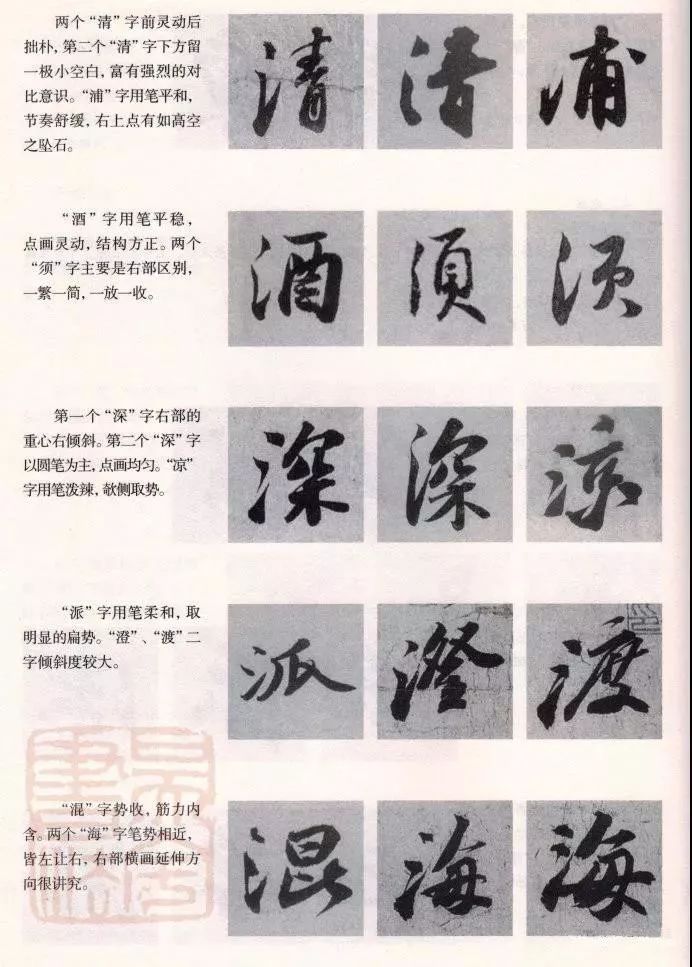 两个“清”字前灵动后
拙朴,第二个“清”字下方留
一极小空白,富有强烈的对
比意识。“浦”字用笔平和,
节奏舒缓,右上点有如高空
之坠石。
清 清 浦
“酒”字用笔平稳,
点画灵动,结构方正。两个
“须”字主要是右部区别,
一繁一简,一放一收。
酒 須 须
第一个“深”字右部的
重心右倾斜。第二个“深”字
以圆笔为主,点画均匀。“凉”
字用笔泼辣,欹侧取势。
深 深 凉
“派”字用笔柔和,取
明显的扁势。“澄”、“渡”二
字倾斜度较大。
派 澄 渡
“混”字势收,筋力内
含。两个“海”字笔势相近,
皆左让右,右部横画延伸方
向很讲究。
混 海 海